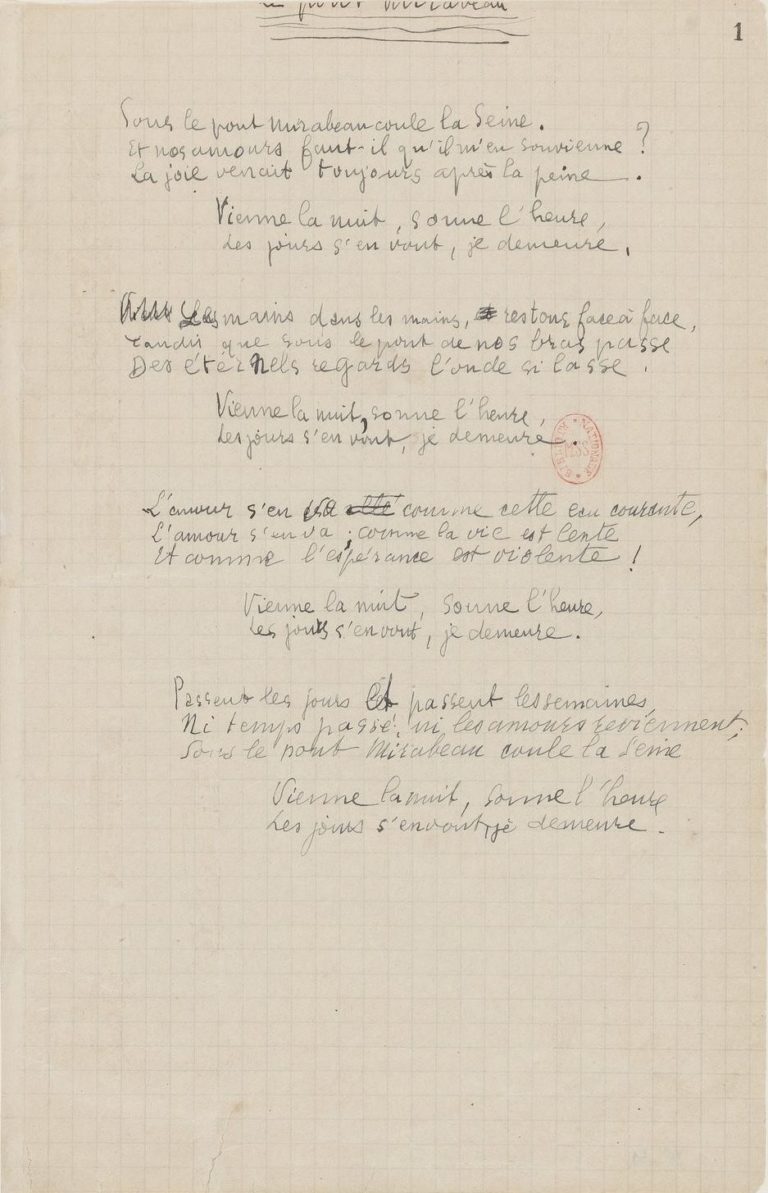 le pont mirabeau
1
Sous le pont mirabeau coule la Seine.
Et nos amours faut-il qu'il m'en souvienne ?
La joie venait toujours après la peine.
Vienne la nuit, sonne l'heure,
Les jours s'en vont, je demeure.
Les mains dans les mains, restons face à face,
Tandis que sous le pont de nos bras passe
Des éternels regards l'onde si lasse.
Vienne la nuit, sonne l'heure,
Les jours s'en vont, je demeure.
L'amour s'en va comme cette eau courante,
L'amour s'en va ; comme la vie est lente
Et comme l'espérance est violente !
Vienne la nuit, sonne l'heure,
Les jours s'en vont, je demeure.
Passent les jours et passent les semaines,
Ni temps passé, ni les amours reviennent;
Sous le pont Mirabeau coule la Seine
Vienne la nuit, sonne l'heure
Les jours s'en vont, je demeure.